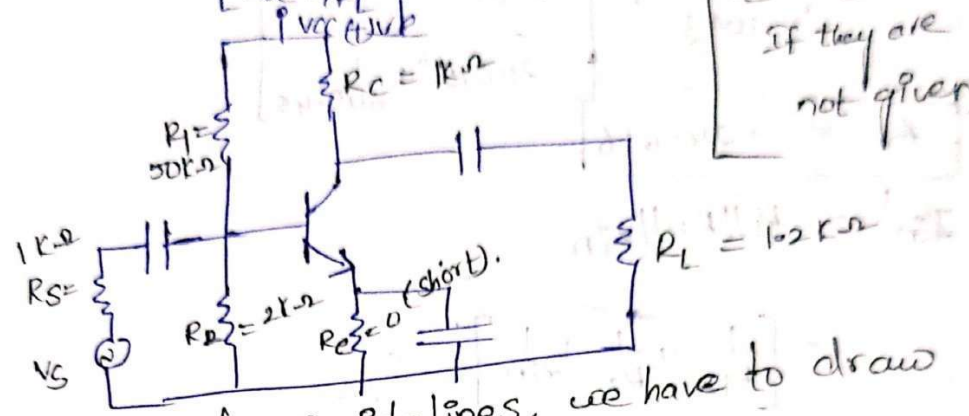 Vcc (+)ve
If they are
not given
RC = 1KΩ
R1=
50KΩ
1KΩ
RS=
RL = 1.2KΩ
(short).
R2 = 2KΩ
Re=0
VS
lines, we have to draw